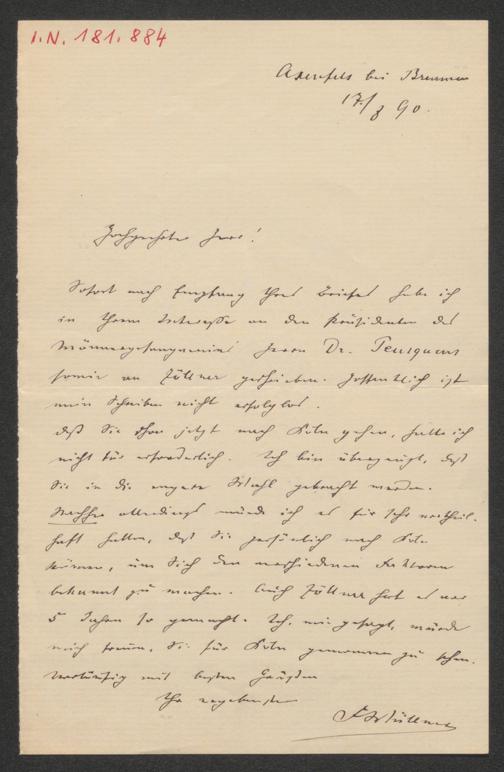 I.N. 181.884
Axenfels bei Brunnen
17/8 90.
Hochgeehrter Herr!
Sofort nach Empfang Ihres Briefes habe ich
in Ihrem Interesse an den Präsidenten des
Männergesangvereins Herrn Dr.
sowie an Zöllner geschrieben. Hoffentlich ist
mein Schreiben nicht erfolglos.
Daß Sie schon jetzt nach Köln gehen, halte ich
nicht für erforderlich. Ich bin überzeugt, daß
Sie in die engere Wahl gebracht werden.
Nachher allerdings würde ich es für sehr vortheil-
haft halten, daß Sie persönlich nach Köln
kämen, um Sich den verschiedenen Faktoren
bekannt zu machen. Auch Zöllner hat es vor
5 Jahren so gemacht. Ich, wie gesagt, würde
mich freuen, Sie für Köln gewonnen zu sehen.
Vorläufig mit besten Grüßen
Ihr ergebenster
F Wüllner